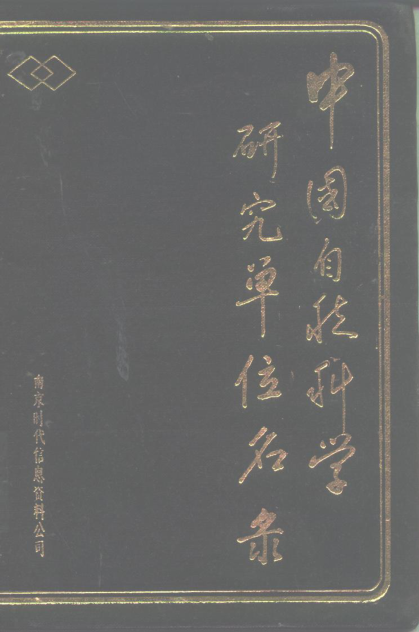 中国自然科学
研究单位名录
南京时代信息资料公司